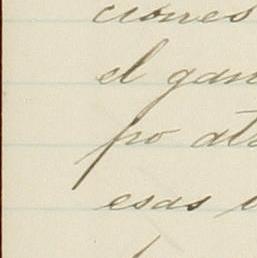 ciones
el gan
po atr
esas